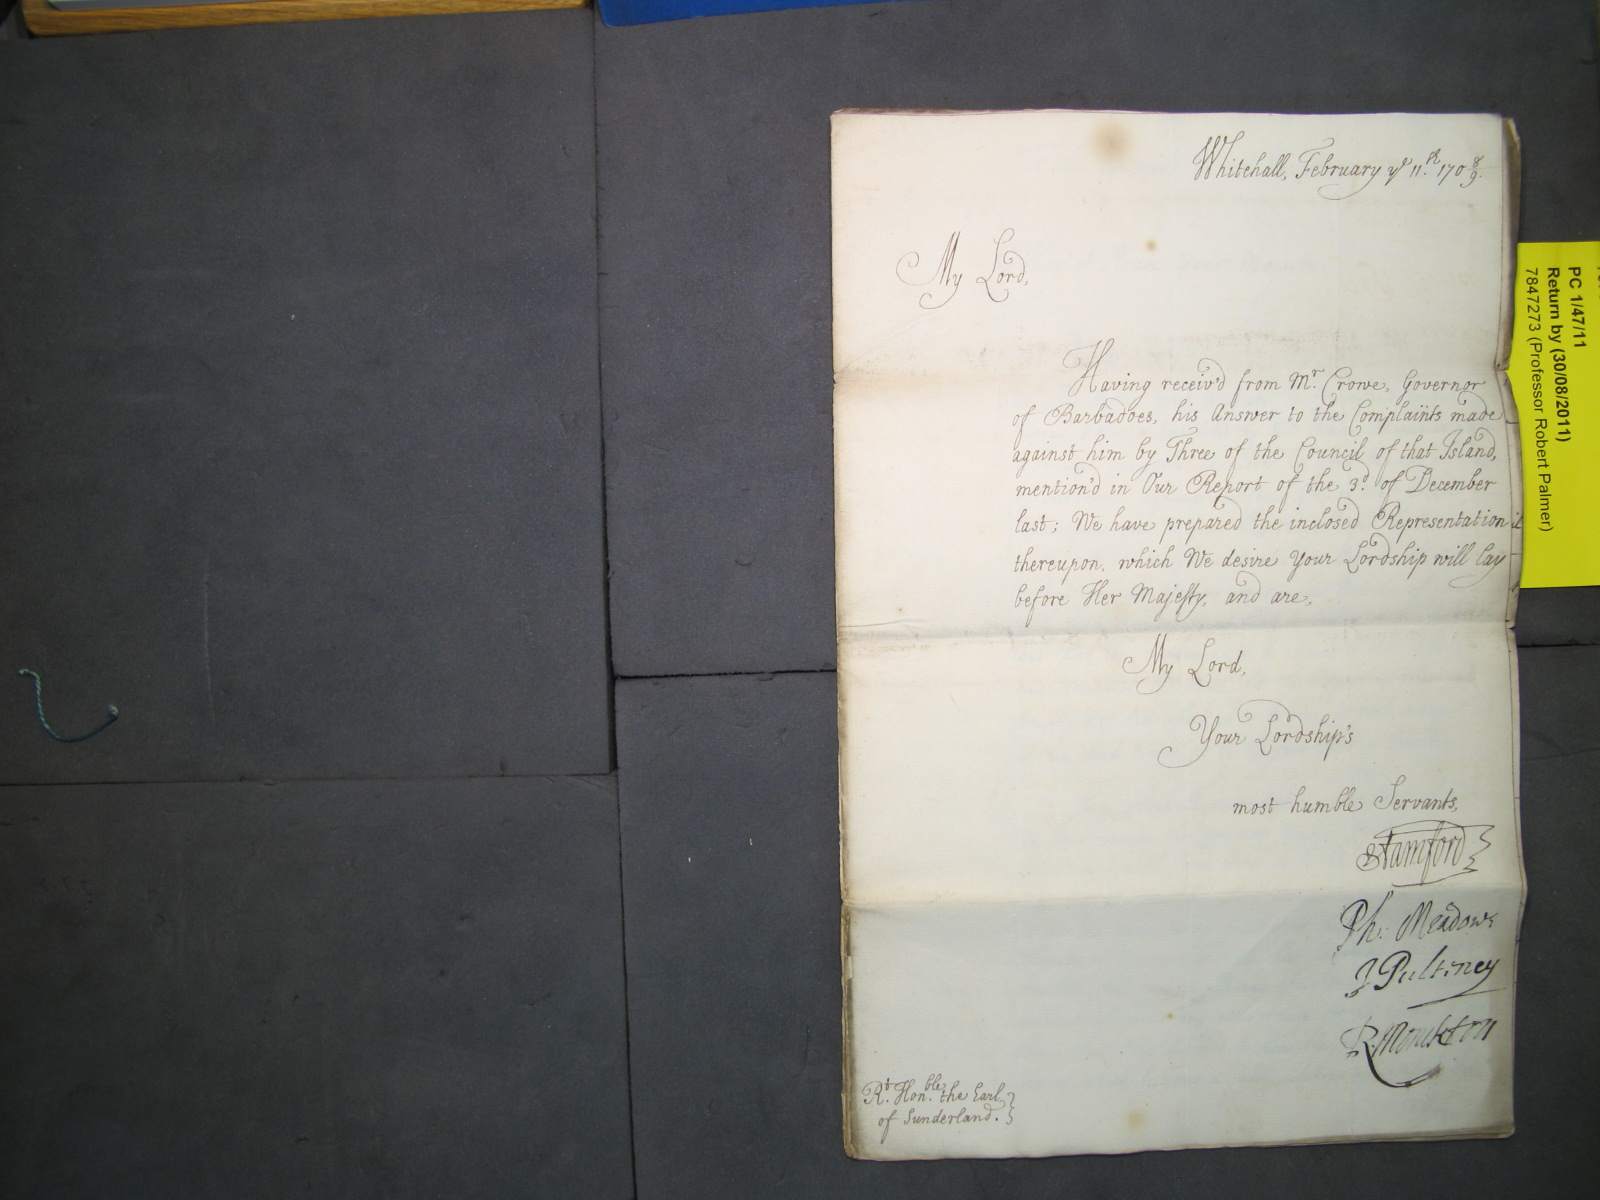 Whitehall, February ye 11.th 170 8/9.
My Lord,
Having receiv'd from Mr. Crowe, Governor
of Barbadoes, his Answer to the Complaints made
against him by Three of the Council of that Island,
mention'd in Our Report of the 3d. of December
last; We have prepared the inclosed Representation
thereupon, which We desire Your Lordship will lay
before Her Majesty, and are,
My Lord,
Your Lordship's
most humble Servants,
Stamford
Ph: Meadows
J Pulteney
R. Monckton
Rt. Honble. the Earl
of Sunderland.
PC 1/47/11
Return by (30/08/2011)
7847273 (Professor Robert Palmer)